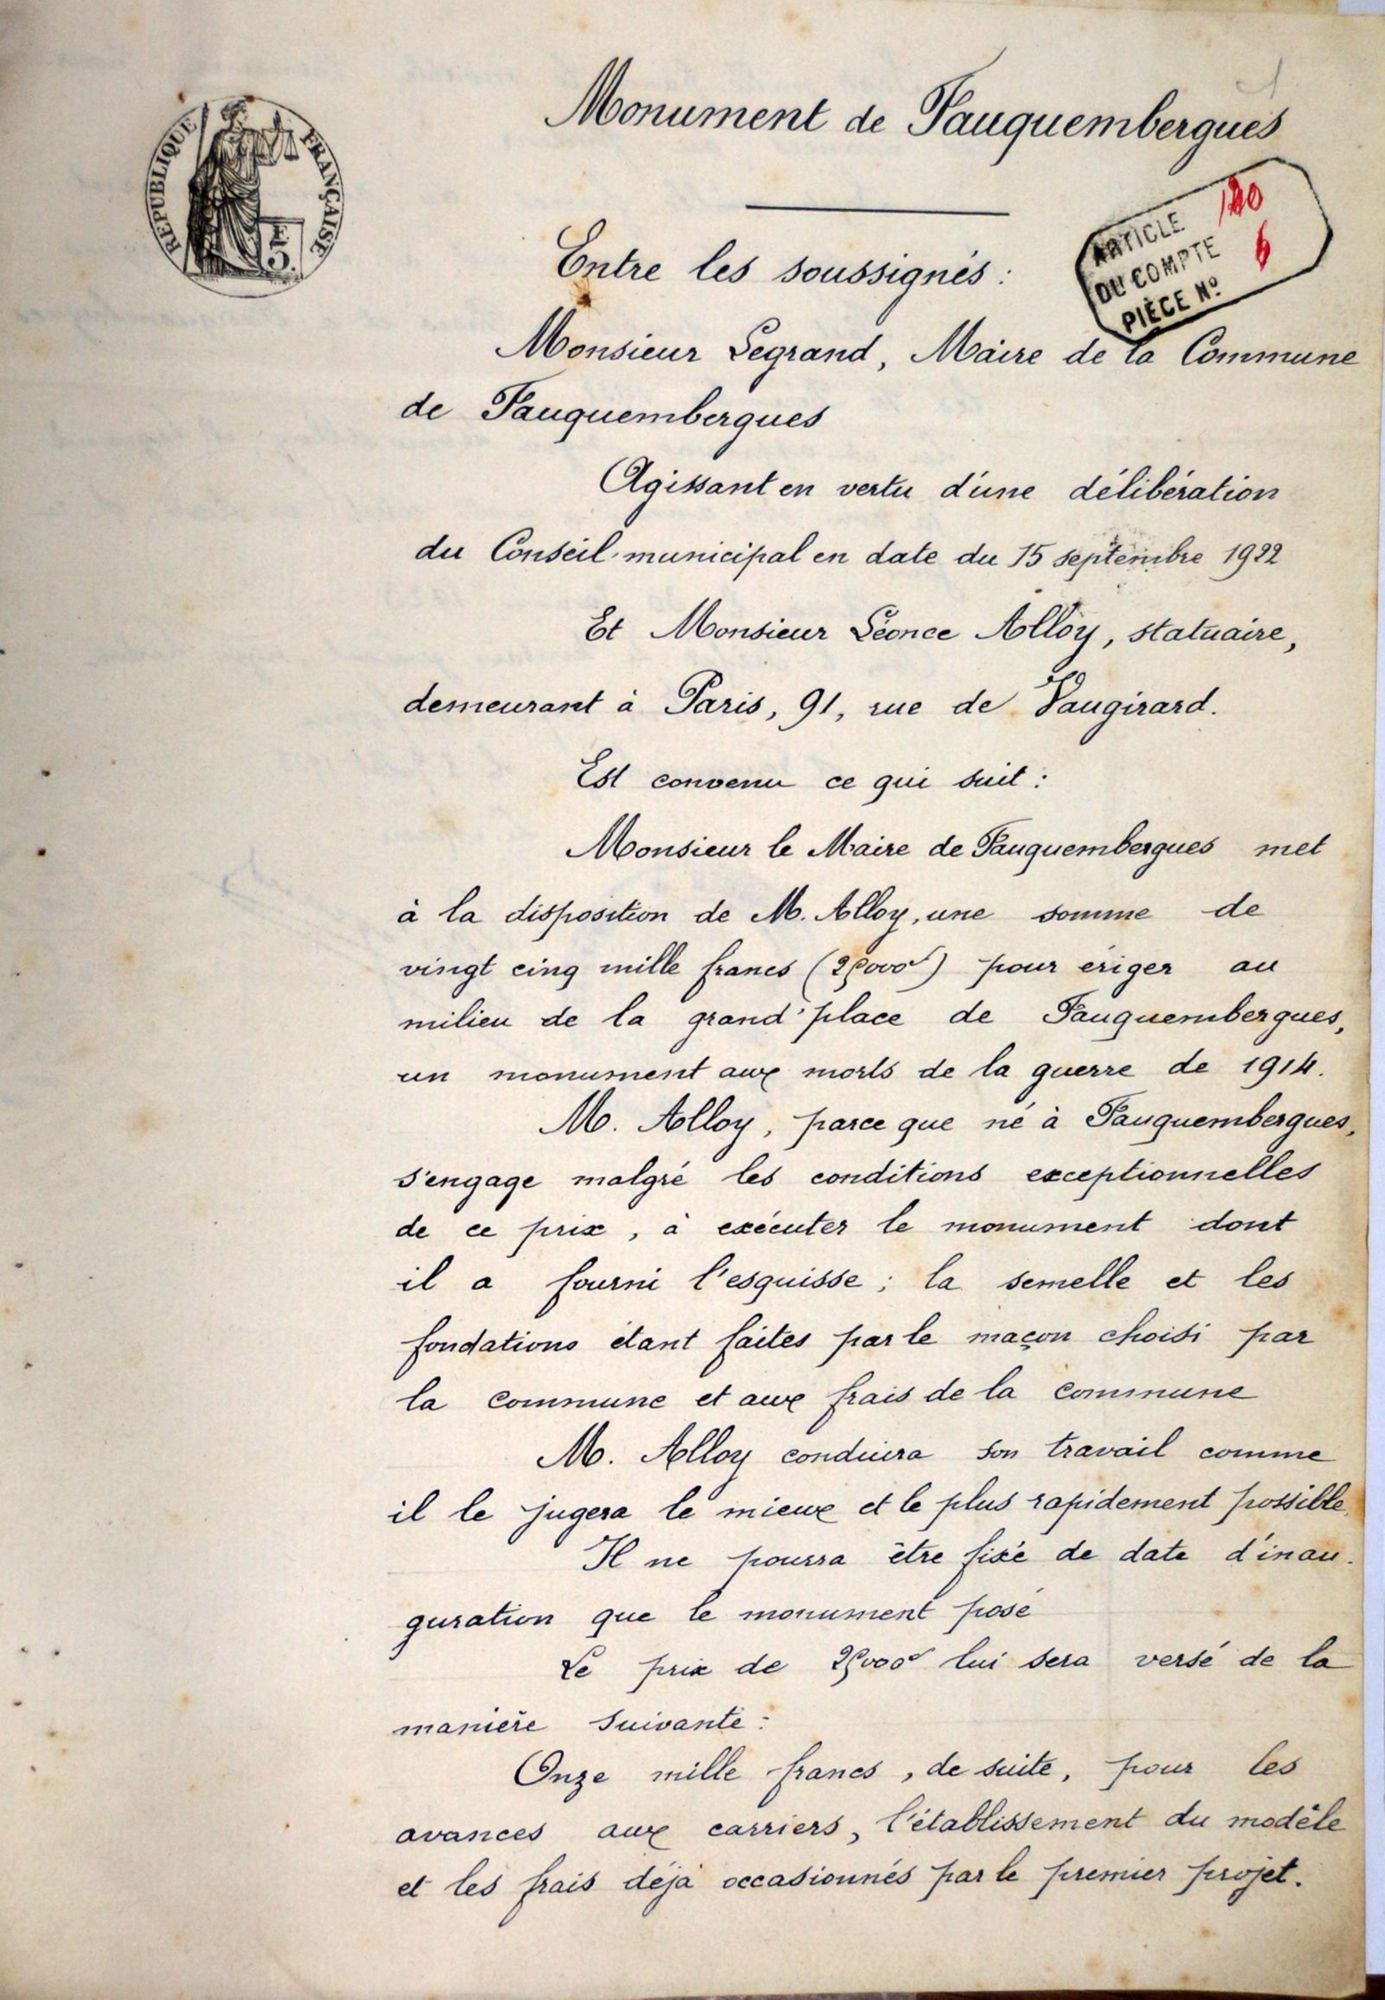 Monument de Fauquembergues
RÉPUBLIQUE FRANÇAISE
F
3
ARTICLE
DU COMPTE
PIÈCE No 6
Entre les soussignés :
Monsieur Legrand, Maire de la Commune
de Fauquembergues
Agissant en vertu d'une délibération
du Conseil municipal en date du 15 septembre 1922
Et Monsieur Léonce Alloy, statuaire,
demeurant à Paris, 91, rue de Vaugirard.
Est convenu ce qui suit :
Monsieur le Maire de Fauquembergues met
à la disposition de M. Alloy, une somme de
vingt cinq mille francs (25000f) pour ériger au
milieu de la grand'place de Fauquembergues,
un monument aux morts de la guerre de 1914.
M. Alloy, parce que né à Fauquembergues,
s'engage malgré les conditions exceptionnelles
de ce prix, à exécuter le monument dont
il a fourni l'esquisse ; la semelle et les
fondations étant faites par le maçon choisi par
la commune et aux frais de la commune
M. Alloy conduira son travail comme
il le jugera le mieux et le plus rapidement possible.
Il ne pourra être fixé de date d'inau-
guration que le monument posé
Le prix de 25000f lui sera versé de la
manière suivante :
Onze mille francs, de suite, pour les
avances aux carriers, l'établissement du modèle
et les frais déjà occasionnés par le premier projet.